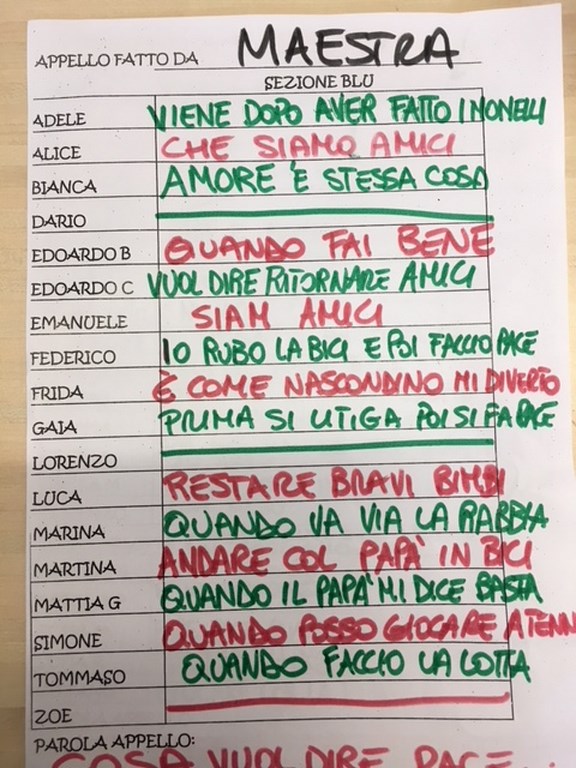 APPELLO FATTO DA MAESTRA
SEZIONE BLU
ADELE VIENE DOPO AVER FATTO I MONELLI
ALICE CHE SIAMO AMICI
BIANCA AMORE È STESSA COSA
DARIO
EDOARDO B QUANDO FAI BENE
EDOARDO C VUOL DIRE RITORNARE AMICI
EMANUELE SIAM AMICI
FEDERICO IO RUBO LA BICI E POI FACCIO PACE
FRIDA È COME NASCONDINO MI DIVERTO
GAIA PRIMA SI LITIGA POI SI FA PACE
LORENZO
LUCA RESTARE BRAVI BIMBI
MARINA QUANDO VA VIA LA RABBIA
MARTINA ANDARE COL PAPÀ IN BICI
MATTIA G QUANDO IL PAPÀ MI DICE BASTA
SIMONE QUANDO POSSO GIOCARE A TENN
TOMMASO QUANDO FACCIO LA LOTTA
ZOE
PAROLA APPELLO:
COSA VUOL DIRE PACE...